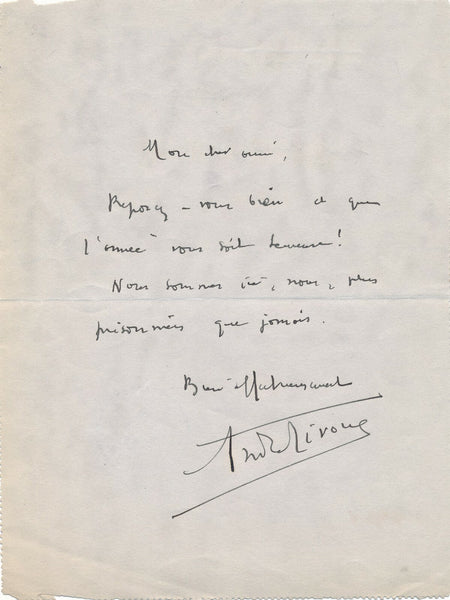 Mon cher ami,
Reposez-vous bien et que
l'année vous soit heureuse!
Nous sommes ici, nous, plus
prisonniers que jamais.
Bien affectueusement
André